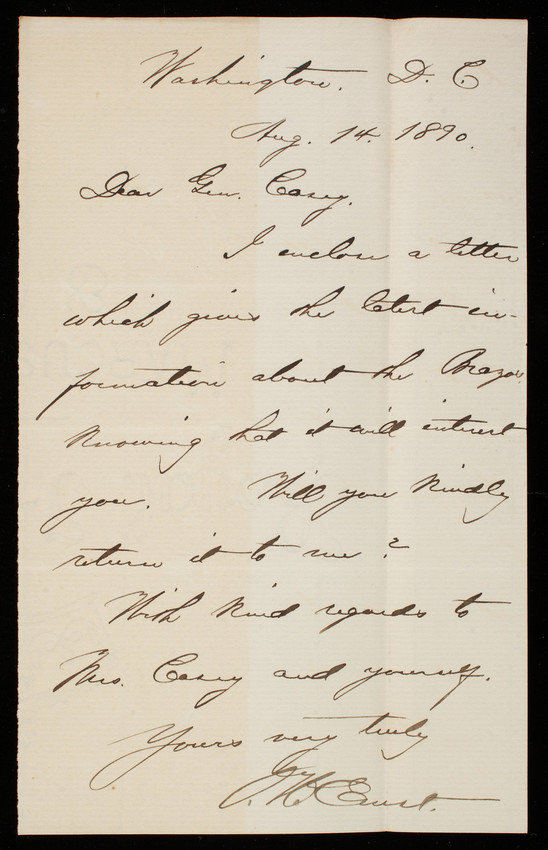 Washington, D. C
Aug. 14. 1890.
Dear Gen. Casey,
I enclose a letter
which gives the latest in-
formation about the Brazos,
knowing that it will interest
you. Will you kindly
return it to me?
With kind regards to
Mrs. Casey and yourself.
Yours very truly
Ernst.